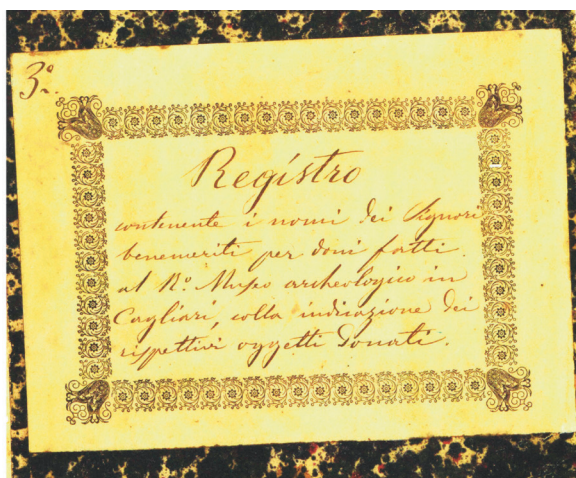 3º.
Registro
contenente i nomi dei Signori
benemeriti per doni fatti
al Rº. Museo archeologico in
Cagliari, colla indicazione dei
rispettivi oggetti donati.